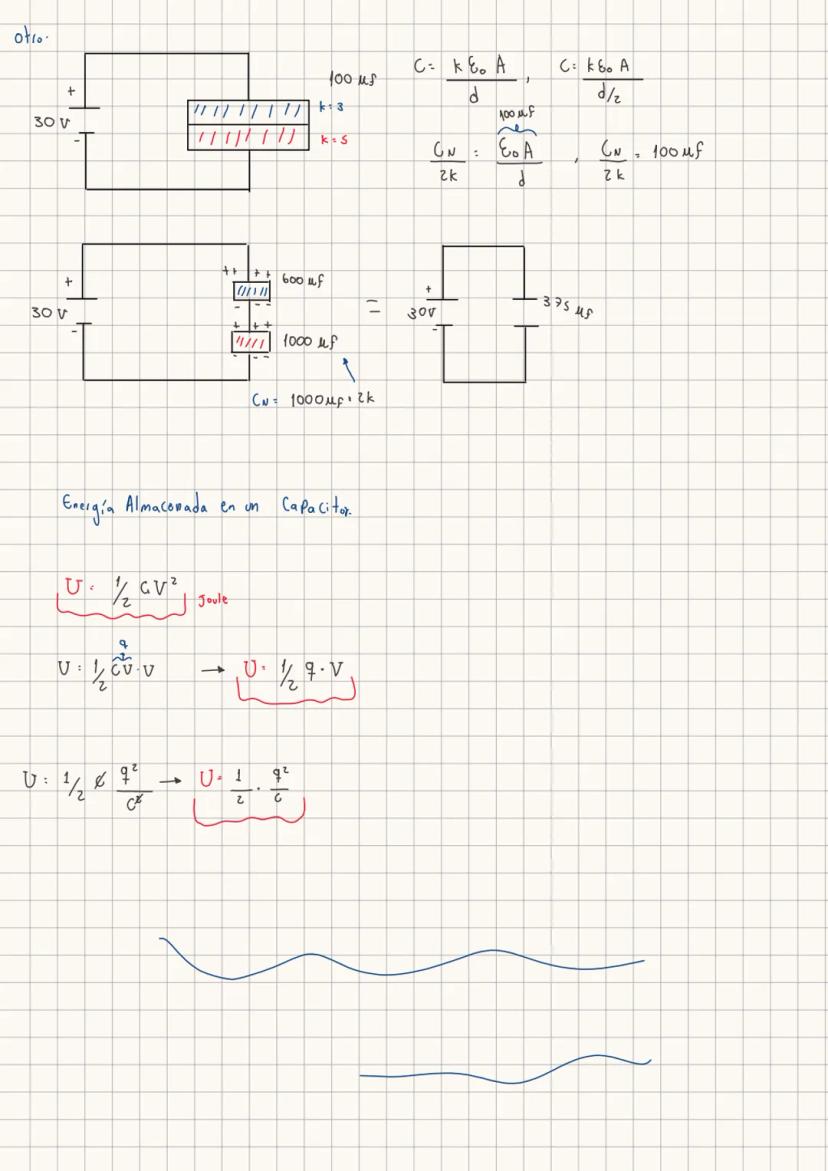 Otro.
+
30 V
-
100 μf
k = 3
k = 5
C = k ε₀ A / d , C = k ε₀ A / d/2
100 μf
CN / 2k = ε₀ A / d , CN / 2k = 100 μf
+
30 V
-
++ ++
600 μf
- - -
+ + +
1000 μf
- - -
CN = 1000 μf · 2k
=
+
30V
-
375 μf
Energía Almacenada en un Capacitor.
U = 1/2 C V² Joule
q
U = 1/2 C V · V → U = 1/2 q · V
U = 1/2 C q² / C² → U = 1/2 · q² / C